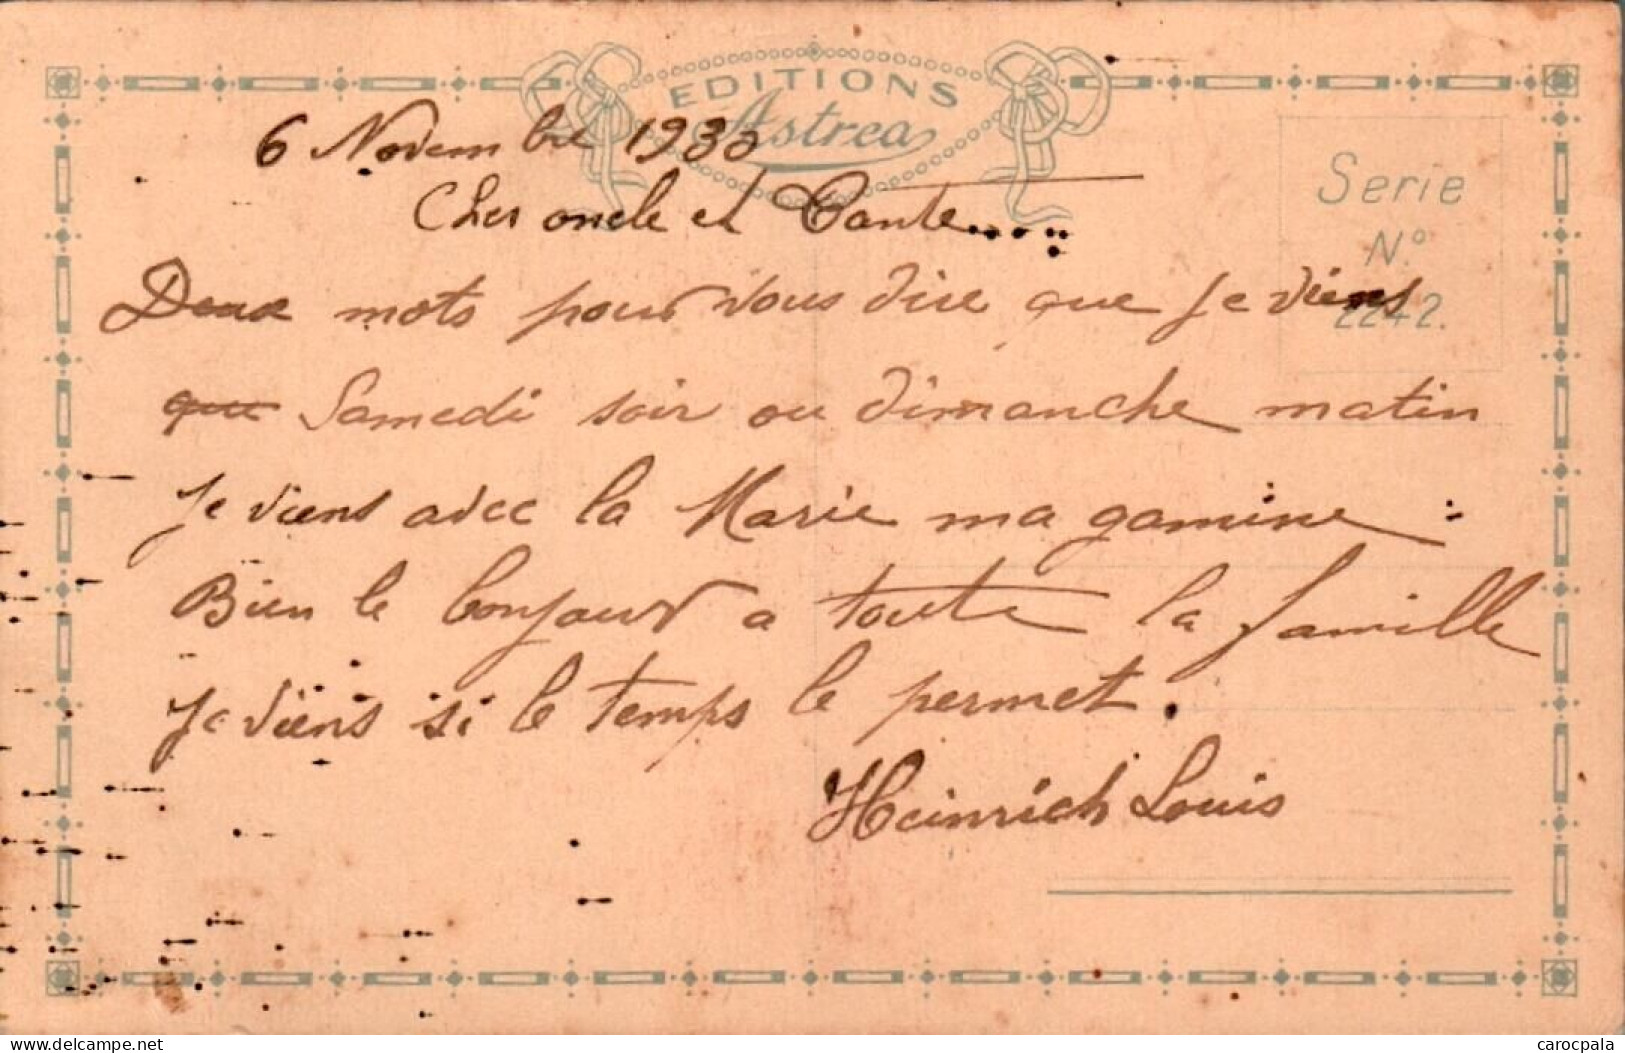 EDITIONS
Astrea
Serie
N.º
2242.
6 Novembre 1933
Cher oncle et Tante.....
Deux mots pour vous dire que je viens
que Samedi soir ou dimanche matin
je viens avec la Marie ma gamine :
Bien le bonjour a toute la famille
je viens si le temps le permet.
Heinrich Louis
www.delcampe.net
carocpala